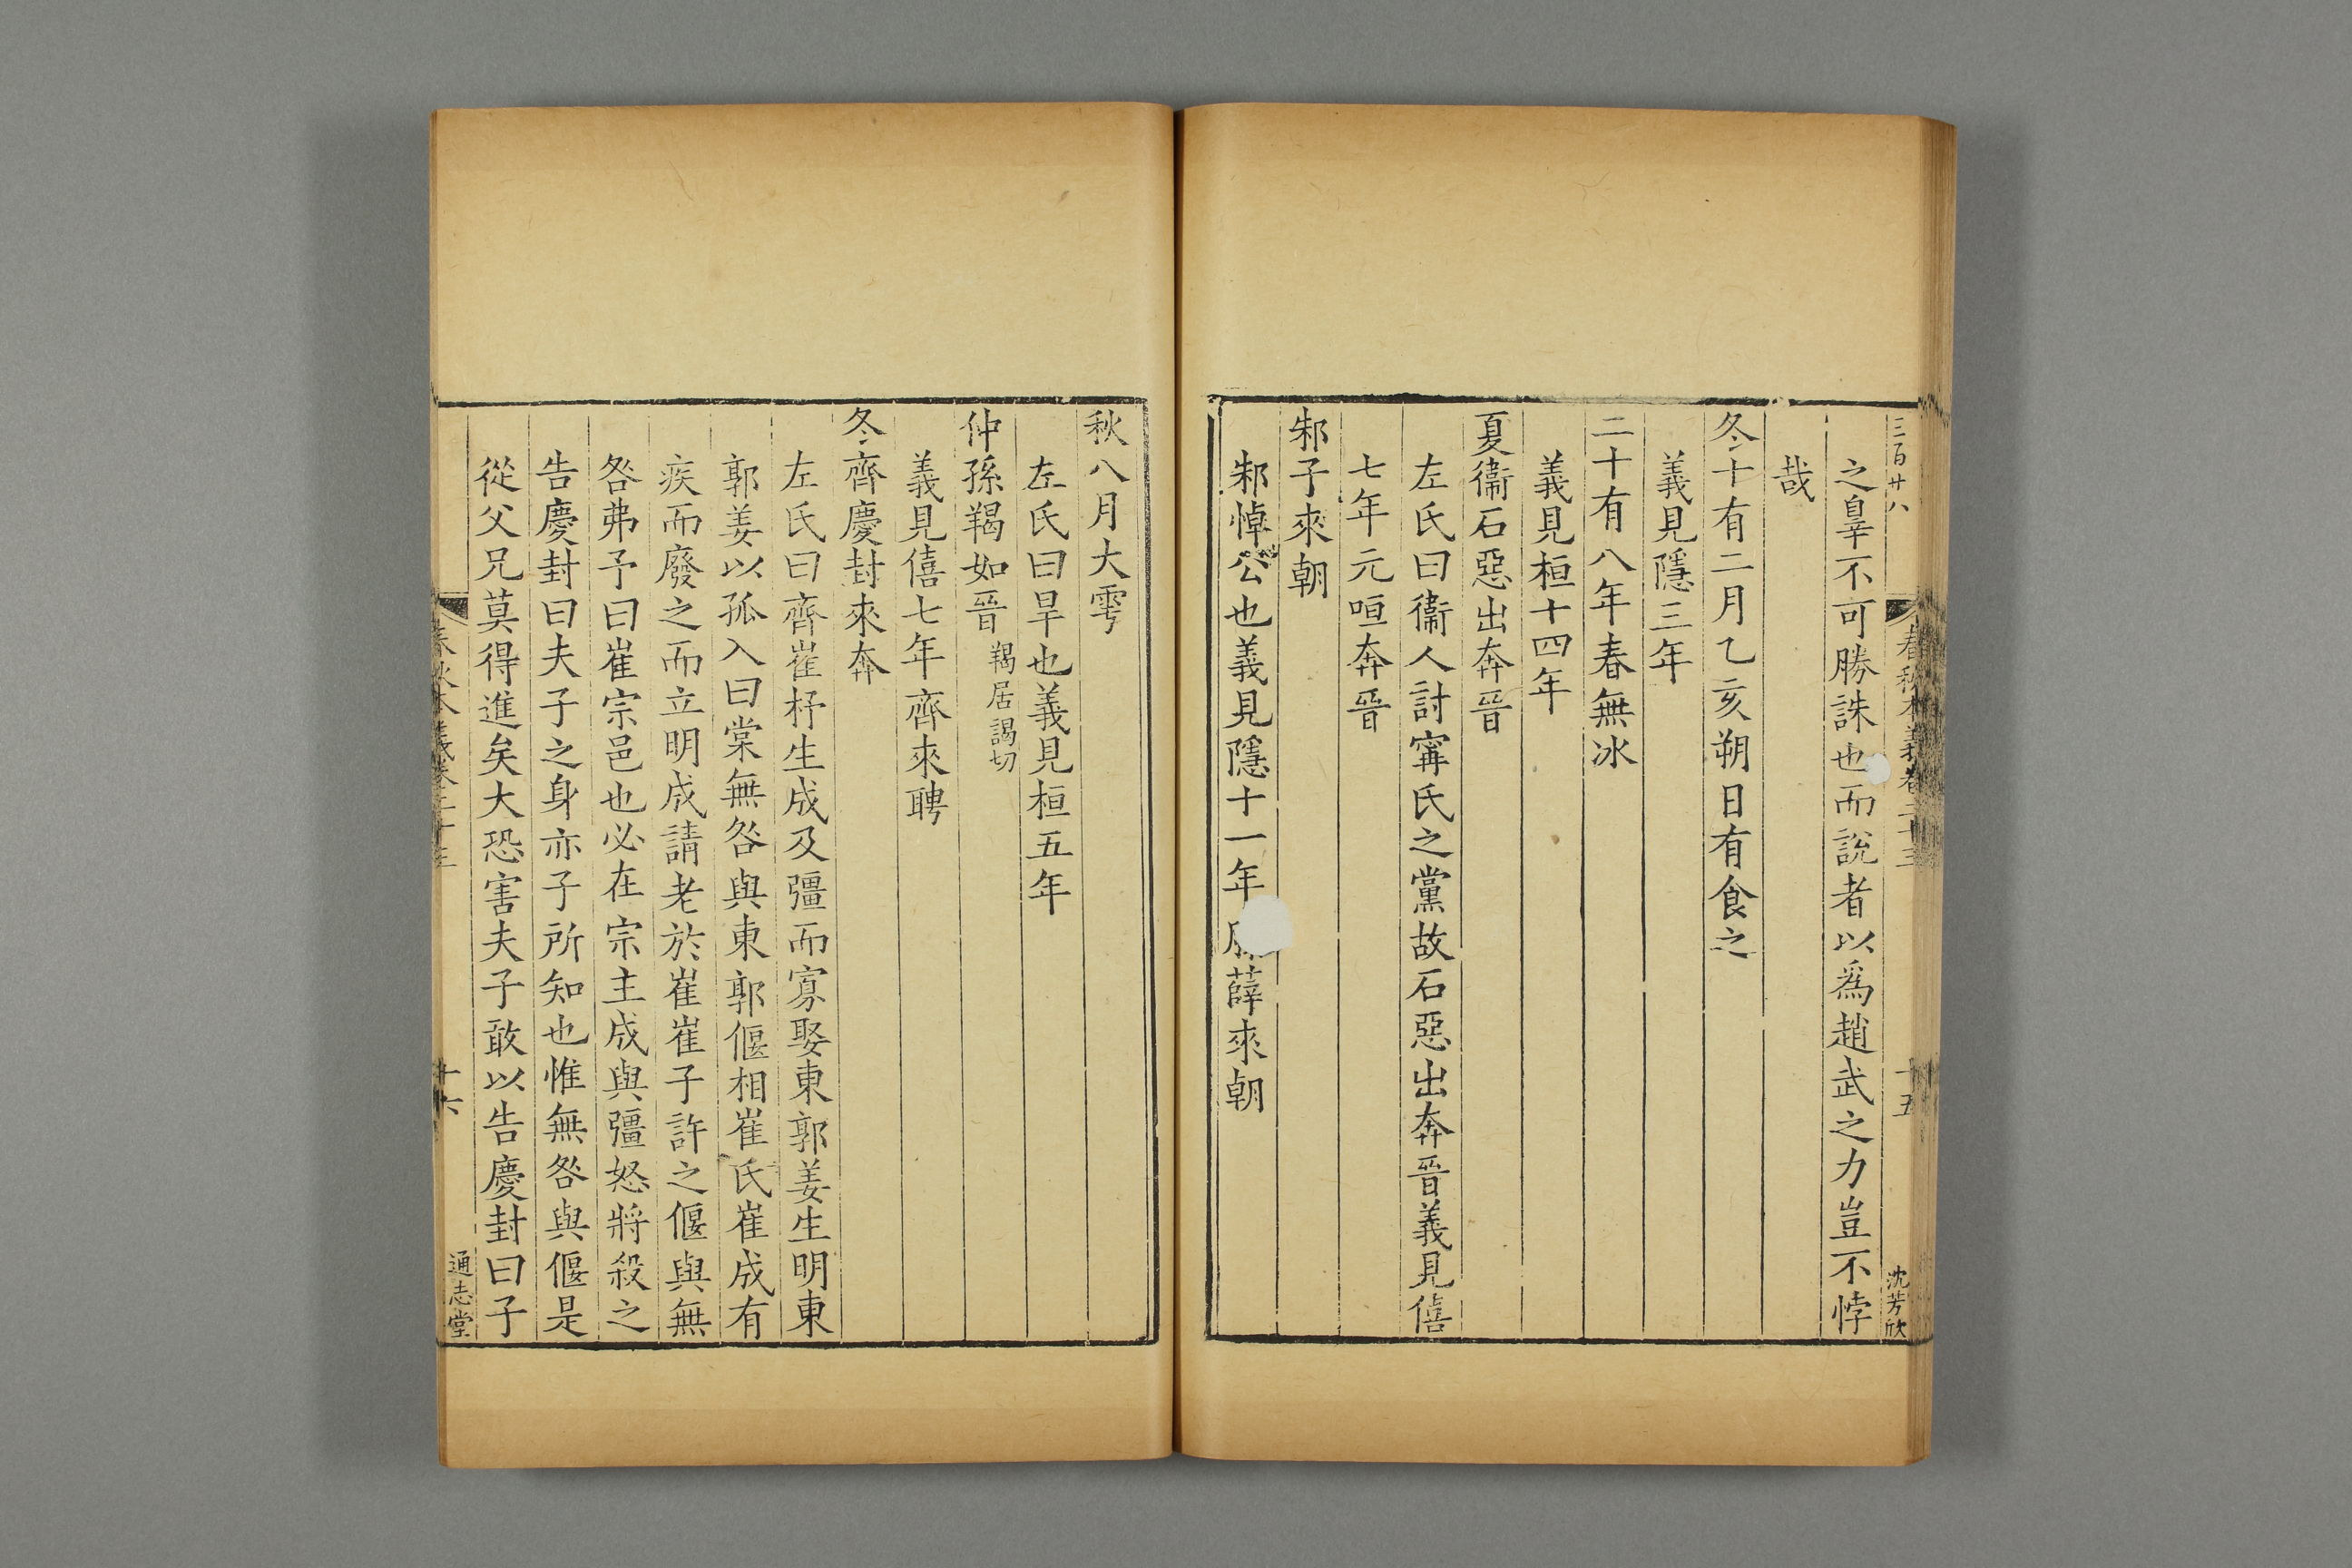 三百廿八
春秋本義卷二十三
十五
沈芳欣
之辠不可勝誅也而說者以爲趙武之力豈不悖
哉
冬十有二月乙亥朔日有食之
義見隱三年
二十有八年春無冰
義見桓十四年
夏衞石惡出奔晉
左氏曰衞人討甯氏之黨故石惡出奔晉義見僖
七年元咺奔晉
邾子來朝
邾悼公也義見隱十一年薛來朝
秋八月大雩
左氏曰旱也義見桓五年
仲孫羯如晉羯居謁切
義見僖七年齊來聘
冬齊慶封來奔
左氏曰齊崔杼生成及彊而寡娶東郭姜生明東
郭姜以孤入曰棠無咎與東郭偃相崔氏崔成有
疾而廢之而立明成請老於崔崔子許之偃與無
咎弗予曰崔宗邑也必在宗主成與彊怒將殺之
告慶封曰夫子之身亦子所知也惟無咎與偃是
從父兄莫得進矣大恐害夫子敢以告慶封曰子
春秋本義卷二十三
十六
通志堂